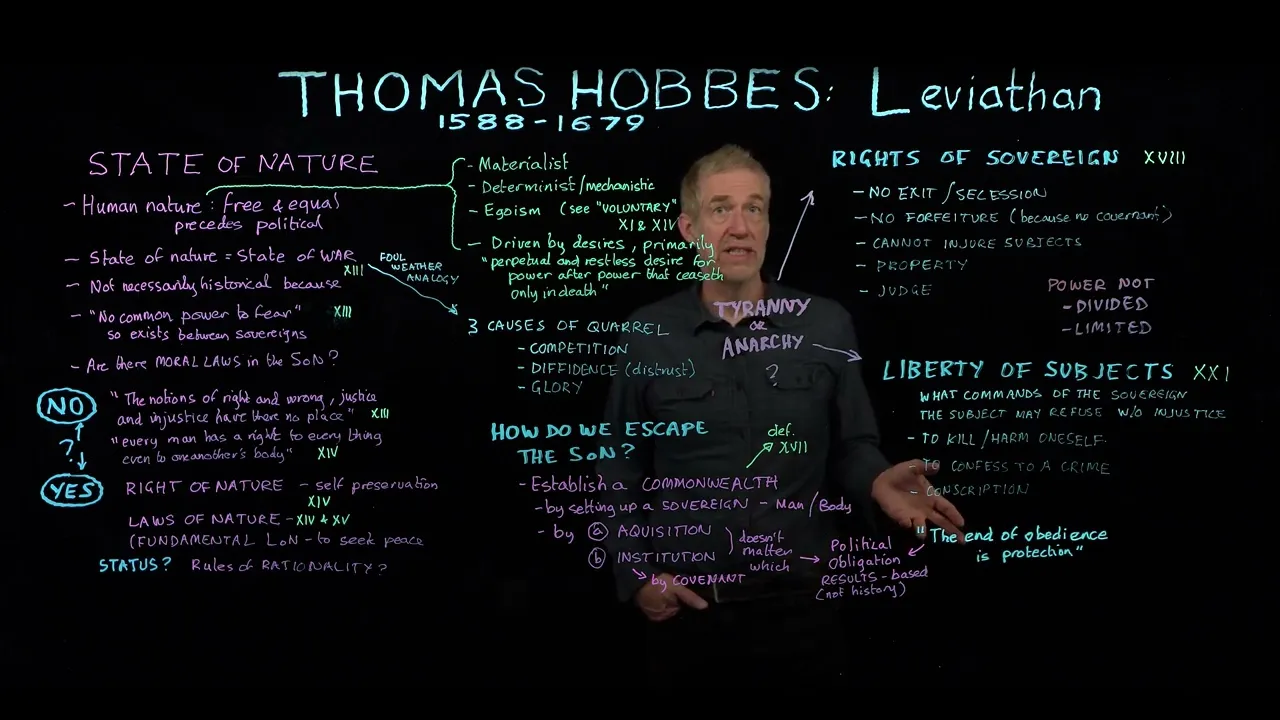 THOMAS HOBBES: Leviathan
1588-1679
STATE OF NATURE
- Human nature: free & equal
precedes political
- State of nature = State of WAR
XIII
- Not necessarily historical because
- "No common power to fear" XIII
so exists between sovereigns
- Are there MORAL LAWS in the SoN?
NO
"The notions of right and wrong, justice
and injustice have there no place" XIII
?
"every man has a right to every thing
even to one another's body" XIV
YES
RIGHT OF NATURE - self preservation
XIV
LAWS OF NATURE - XIV + XV
(FUNDAMENTAL LoN - to seek peace
STATUS? Rules of RATIONALITY?
- Materialist
- Determinist/mechanistic
- Egoism (see "VOLUNTARY"
XI & XIV)
- Driven by desires, primarily
"perpetual and restless desire for
power after power that ceaseth
only in death"
FOUL
WEATHER
ANALOGY
3 CAUSES OF QUARREL
- COMPETITION
- DIFFIDENCE (distrust)
- GLORY
HOW DO WE ESCAPE
THE SoN?
def.
XVII
- Establish a COMMONWEALTH
- by setting up a SOVEREIGN - Man/Body
- by (a) AQUISITION
(b) INSTITUTION
by COVENANT
doesn't
matter
which
Political
Obligation
RESULTS-based
(not history)
TYRANNY
or
ANARCHY
?
RIGHTS OF SOVEREIGN XVIII
- NO EXIT/SECESSION
- NO FORFEITURE (because no covenant)
- CANNOT INJURE SUBJECTS
- PROPERTY
- JUDGE
POWER NOT
- DIVIDED
- LIMITED
LIBERTY OF SUBJECTS XXI
WHAT COMMANDS OF THE SOVEREIGN
THE SUBJECT MAY REFUSE W/O INJUSTICE
- TO KILL/HARM ONESELF
- TO CONFESS TO A CRIME
- CONSCRIPTION
"The end of obedience
is protection"